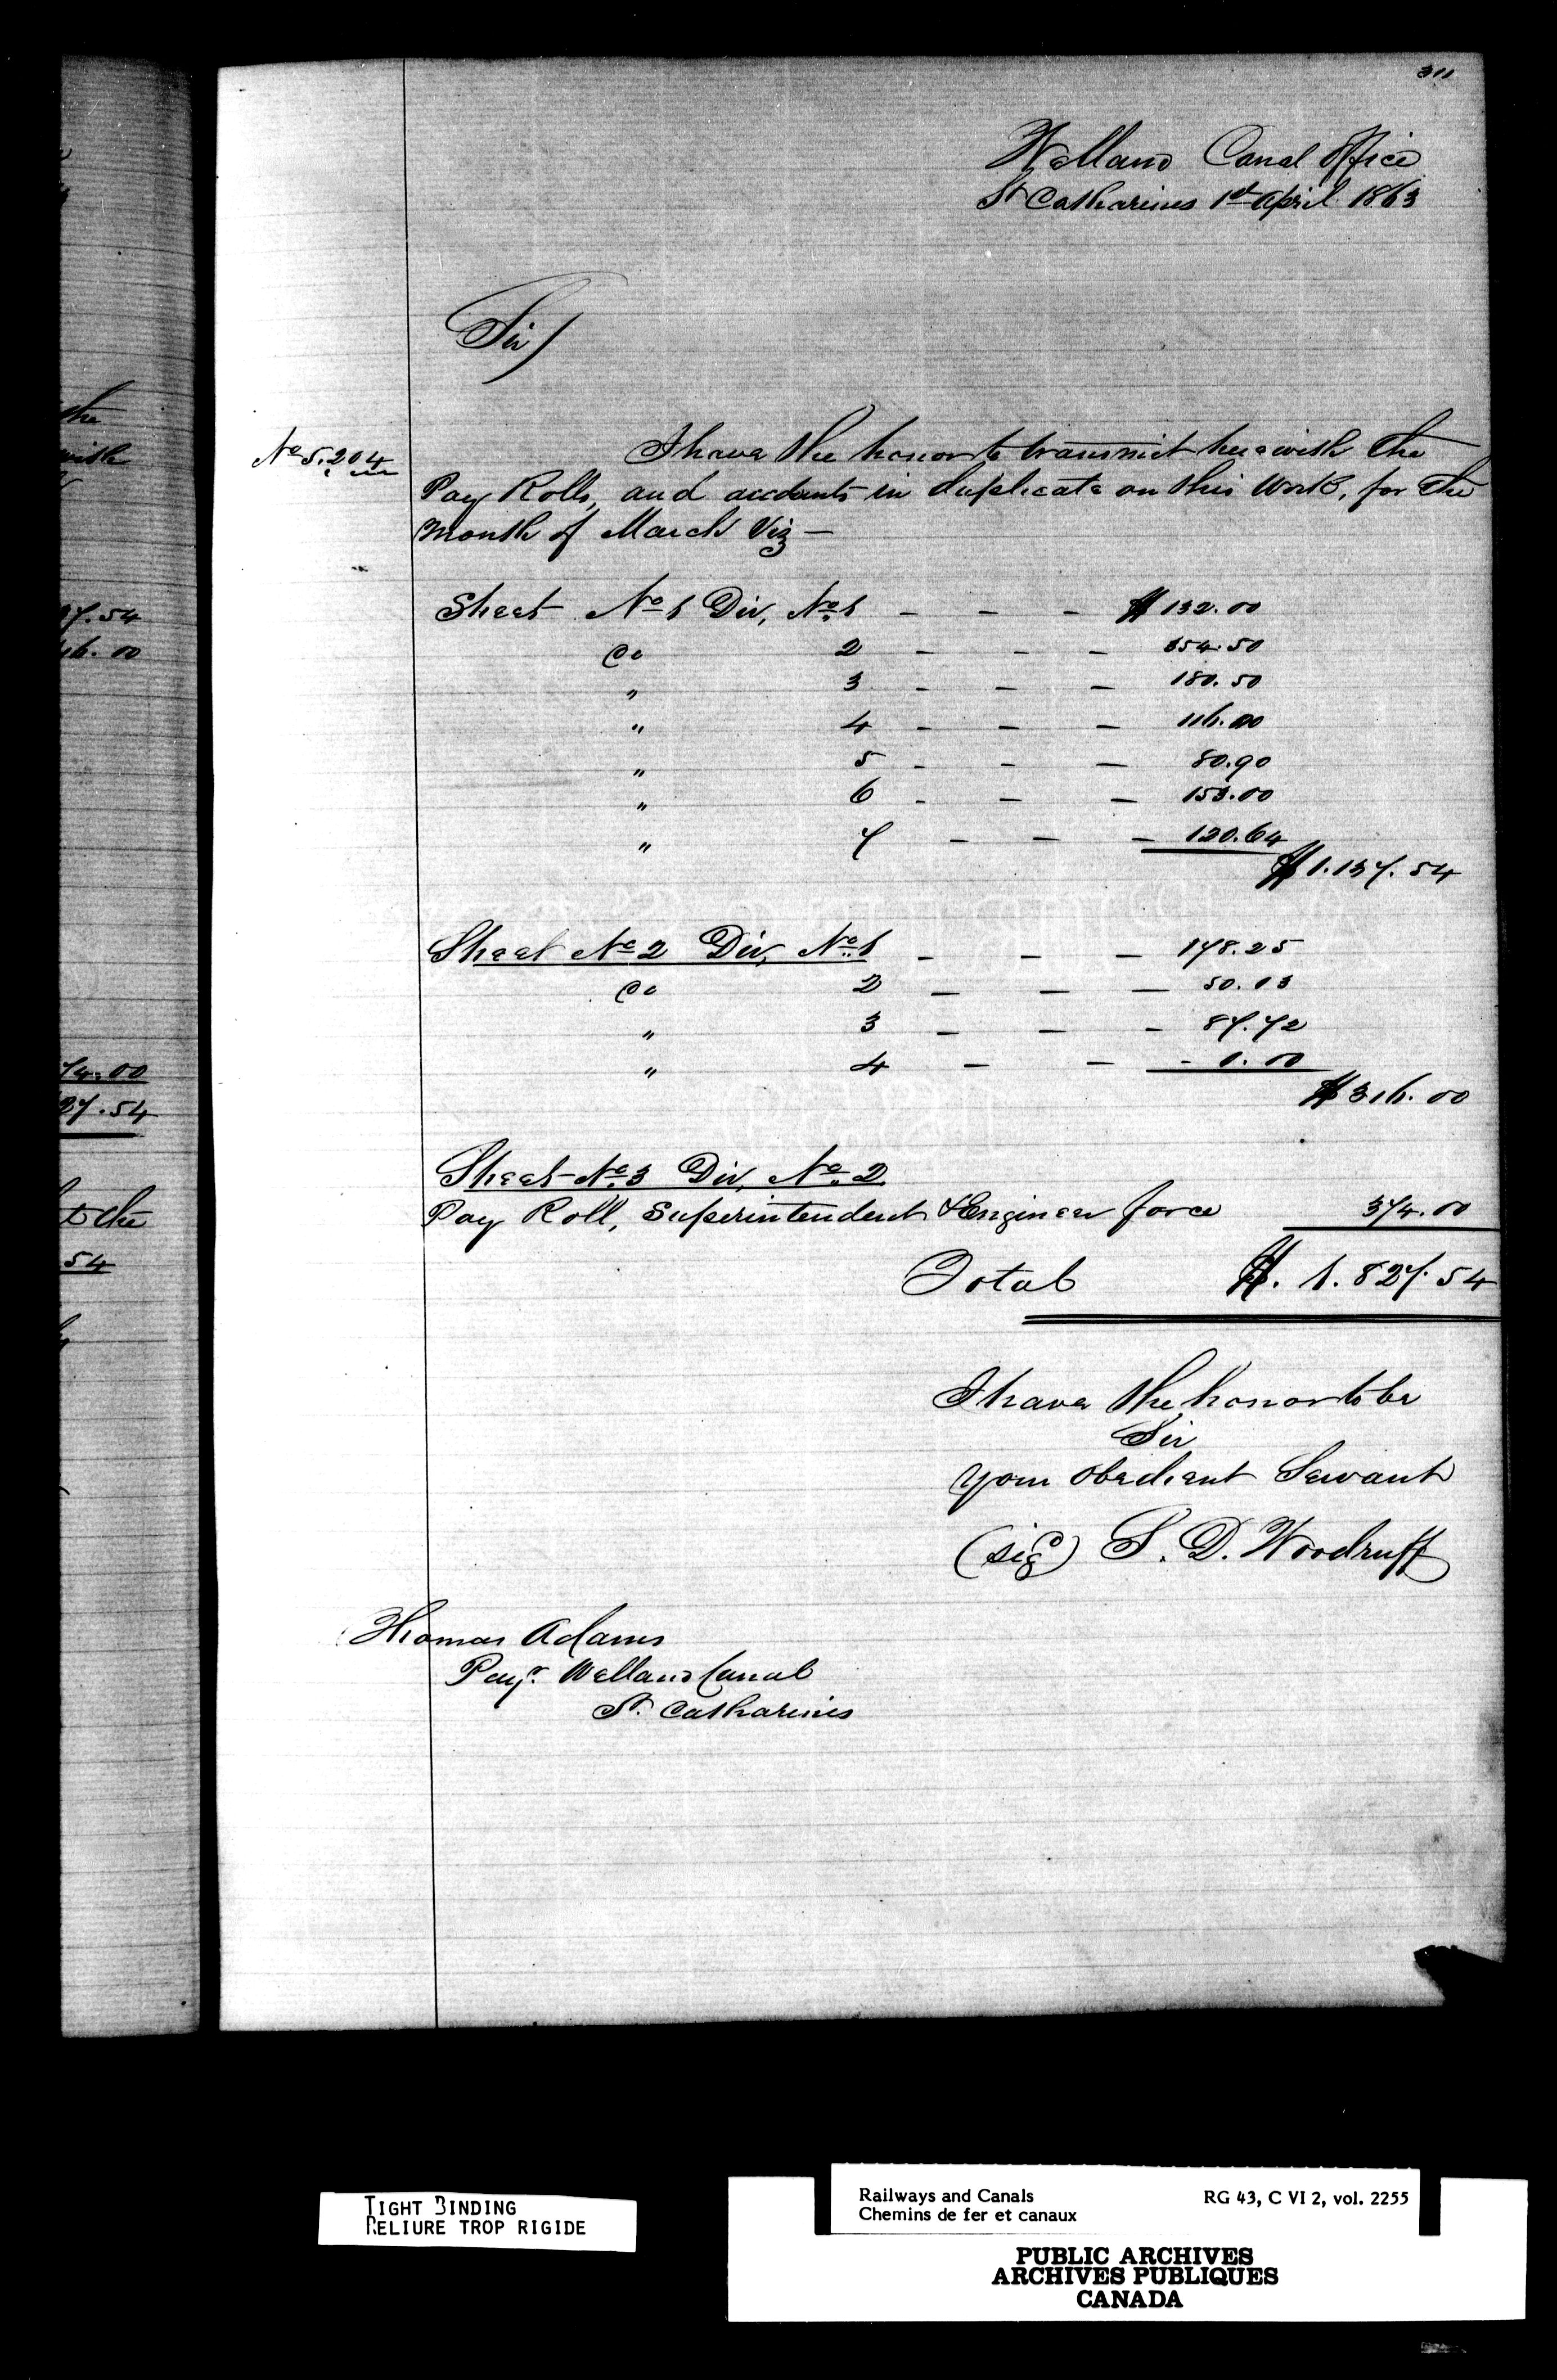 the
with
37.54
16.00
74.00
27.54
to the
54
311
Welland Canal Office
St Catharines 1st April 1863
Sir/
No 5.204
I have the honor to transmit herewith the
Pay Rolls, and accounts in duplicate on this Work, for the
month of March Viz —
Sheet No 1 Div, No 1 - - - $ 132.00
Do 2 - - - 354.50
" 3 - - - 180.50
" 4 - - - 116.00
" 5 - - - 80.90
" 6 - - - 153.00
" 7 - - - 120.64
$ 1.137.54
Sheet No 2 Div, No 1 - - - 178.25
Do 2 - - - 50.03
" 3 - - - 87.72
" 4 - - - 0.00
$ 316.00
Sheet No 3 Div, No 2
Pay Roll, Superintendent & Engineer force 374.00
Total $. 1.827.54
I have the honor to be
Sir
your obedient Servant
(sigd) S. D. Woodruff
Thomas Adams
Paymr Welland Canal
St. Catharines
TIGHT BINDING
RELIURE TROP RIGIDE
Railways and Canals RG 43, C VI 2, vol. 2255
Chemins de fer et canaux
PUBLIC ARCHIVES
ARCHIVES PUBLIQUES
CANADA